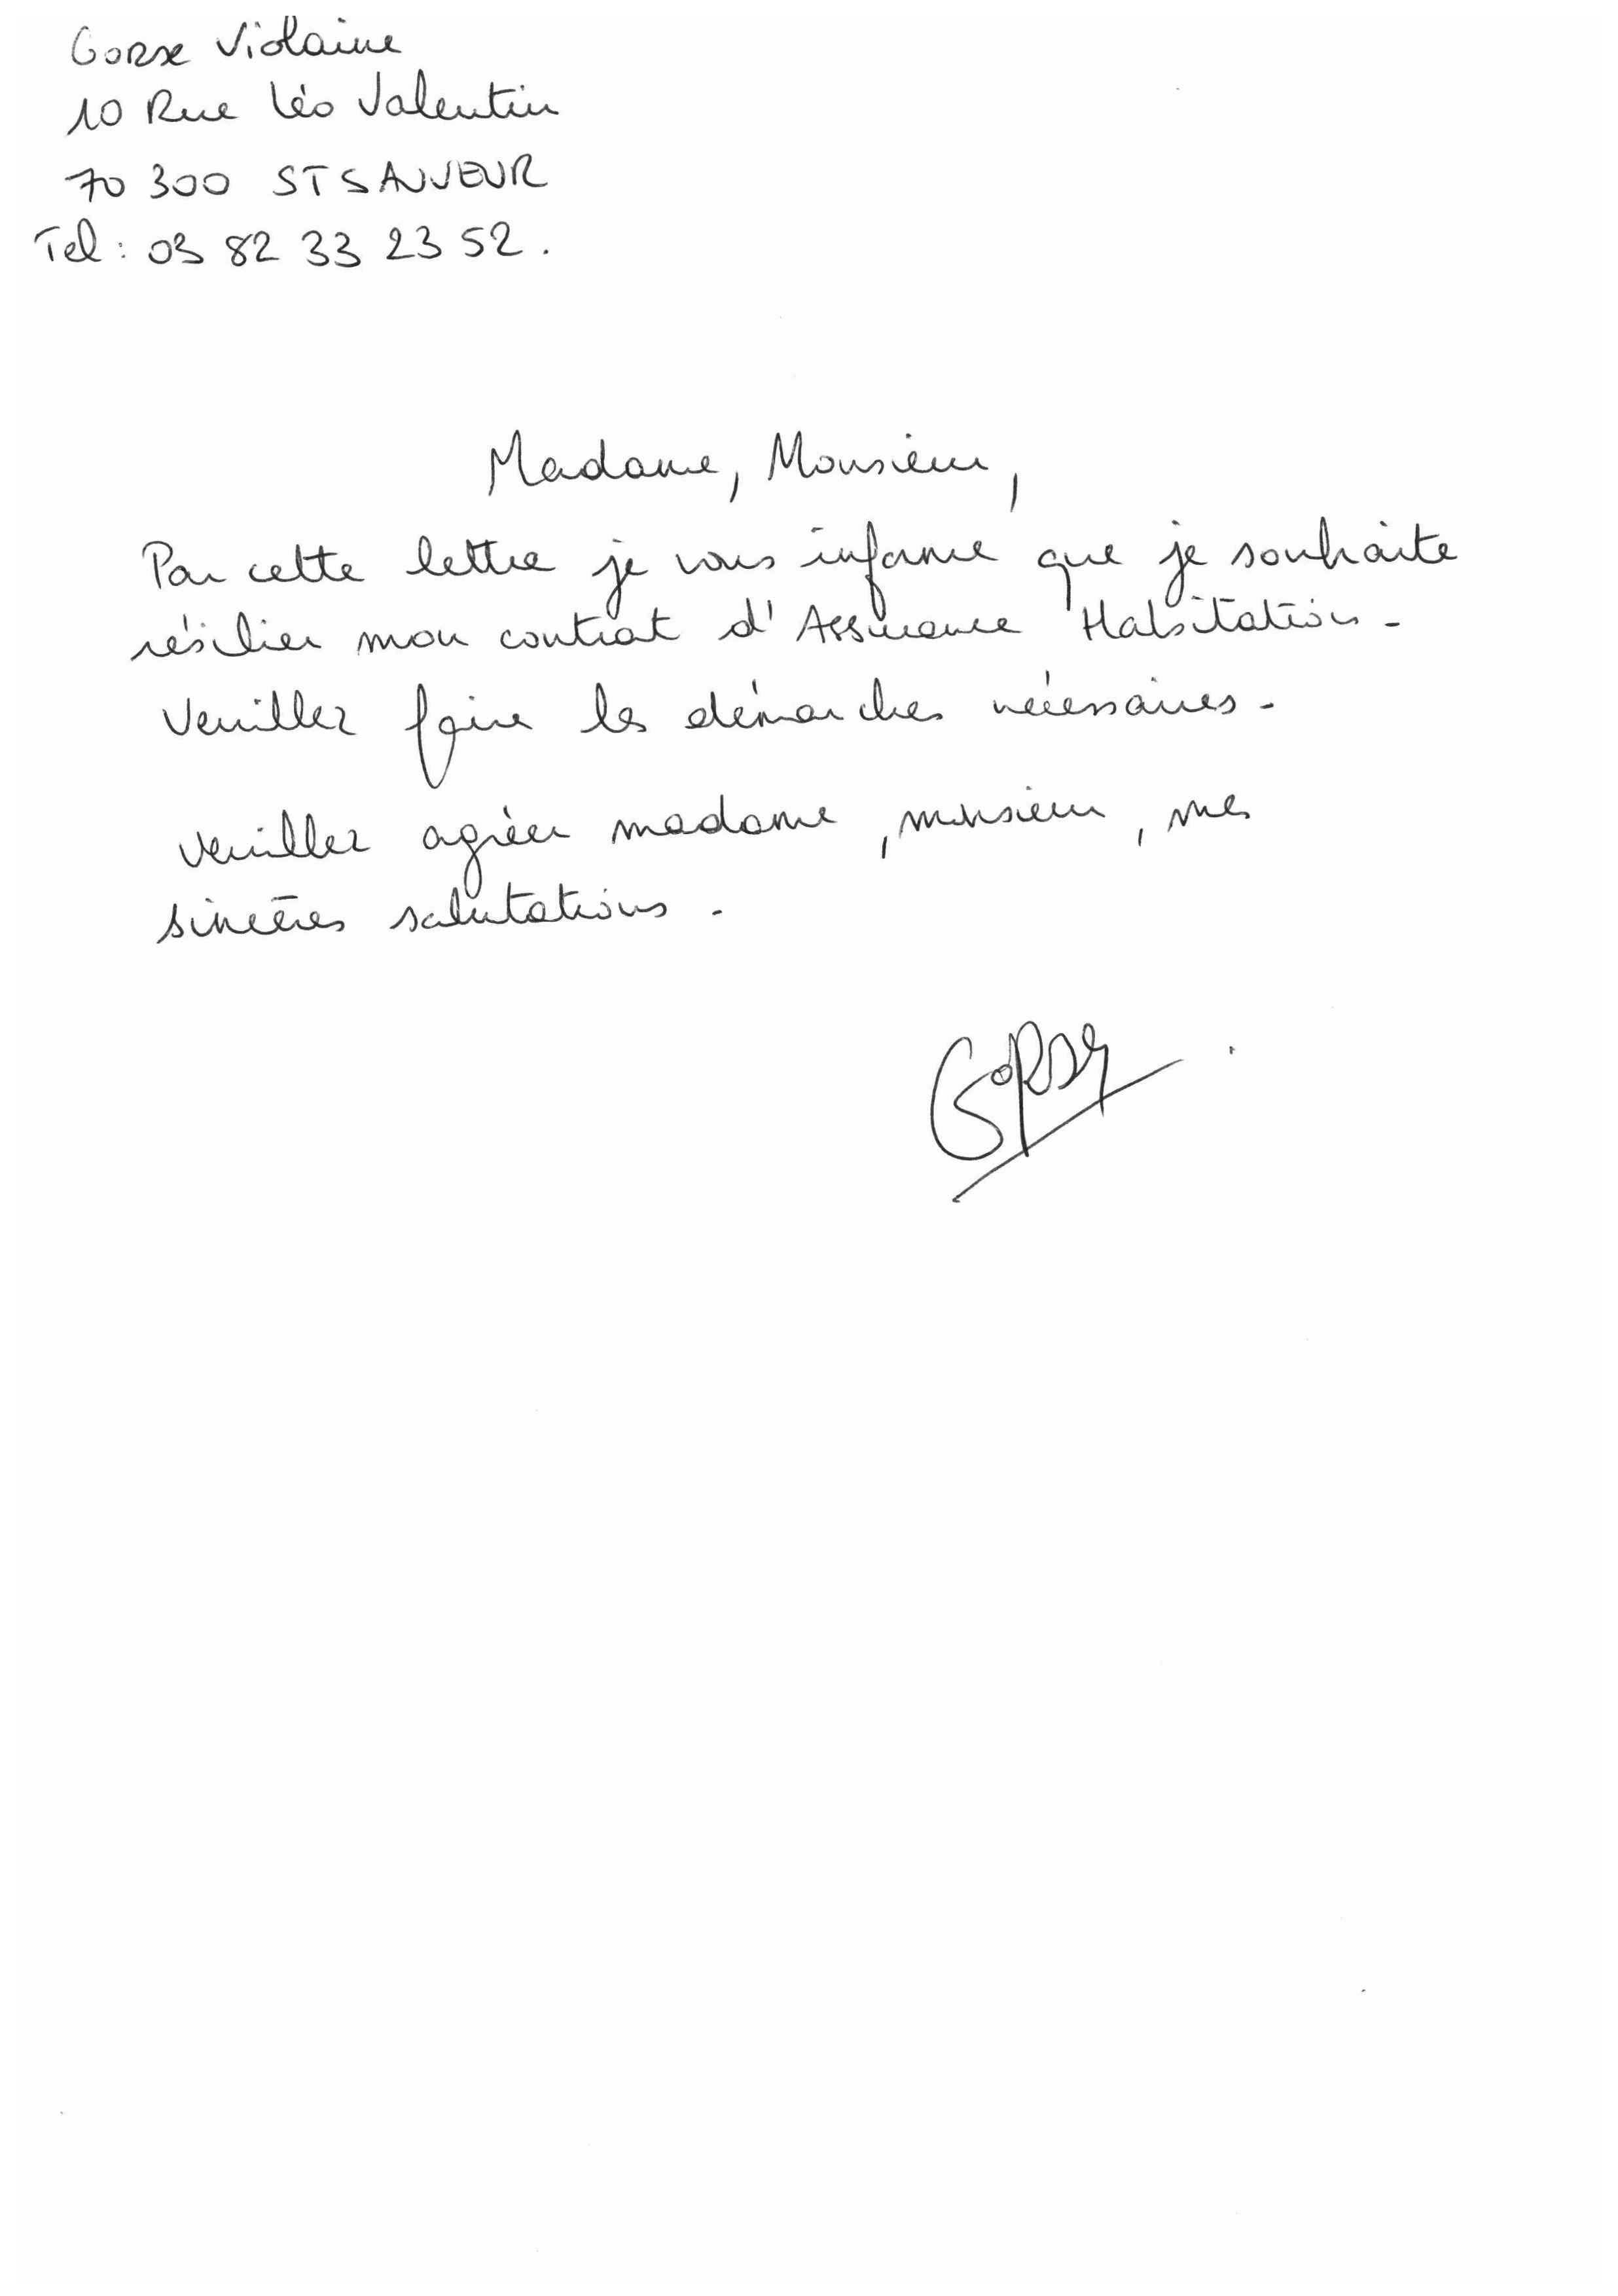 Gorse Violaine
10 Rue Léo Valentin
70 300 ST SAUVEUR
Tel : 03 82 33 23 52.
Madame, Monsieur,
Par cette lettre je vous informe que je souhaite
résilier mon contrat d'Assurance Habitation.
Veuillez faire les démarches nécessaires.
Veuillez agréer madame, monsieur, mes
sincères salutations.
Gorse